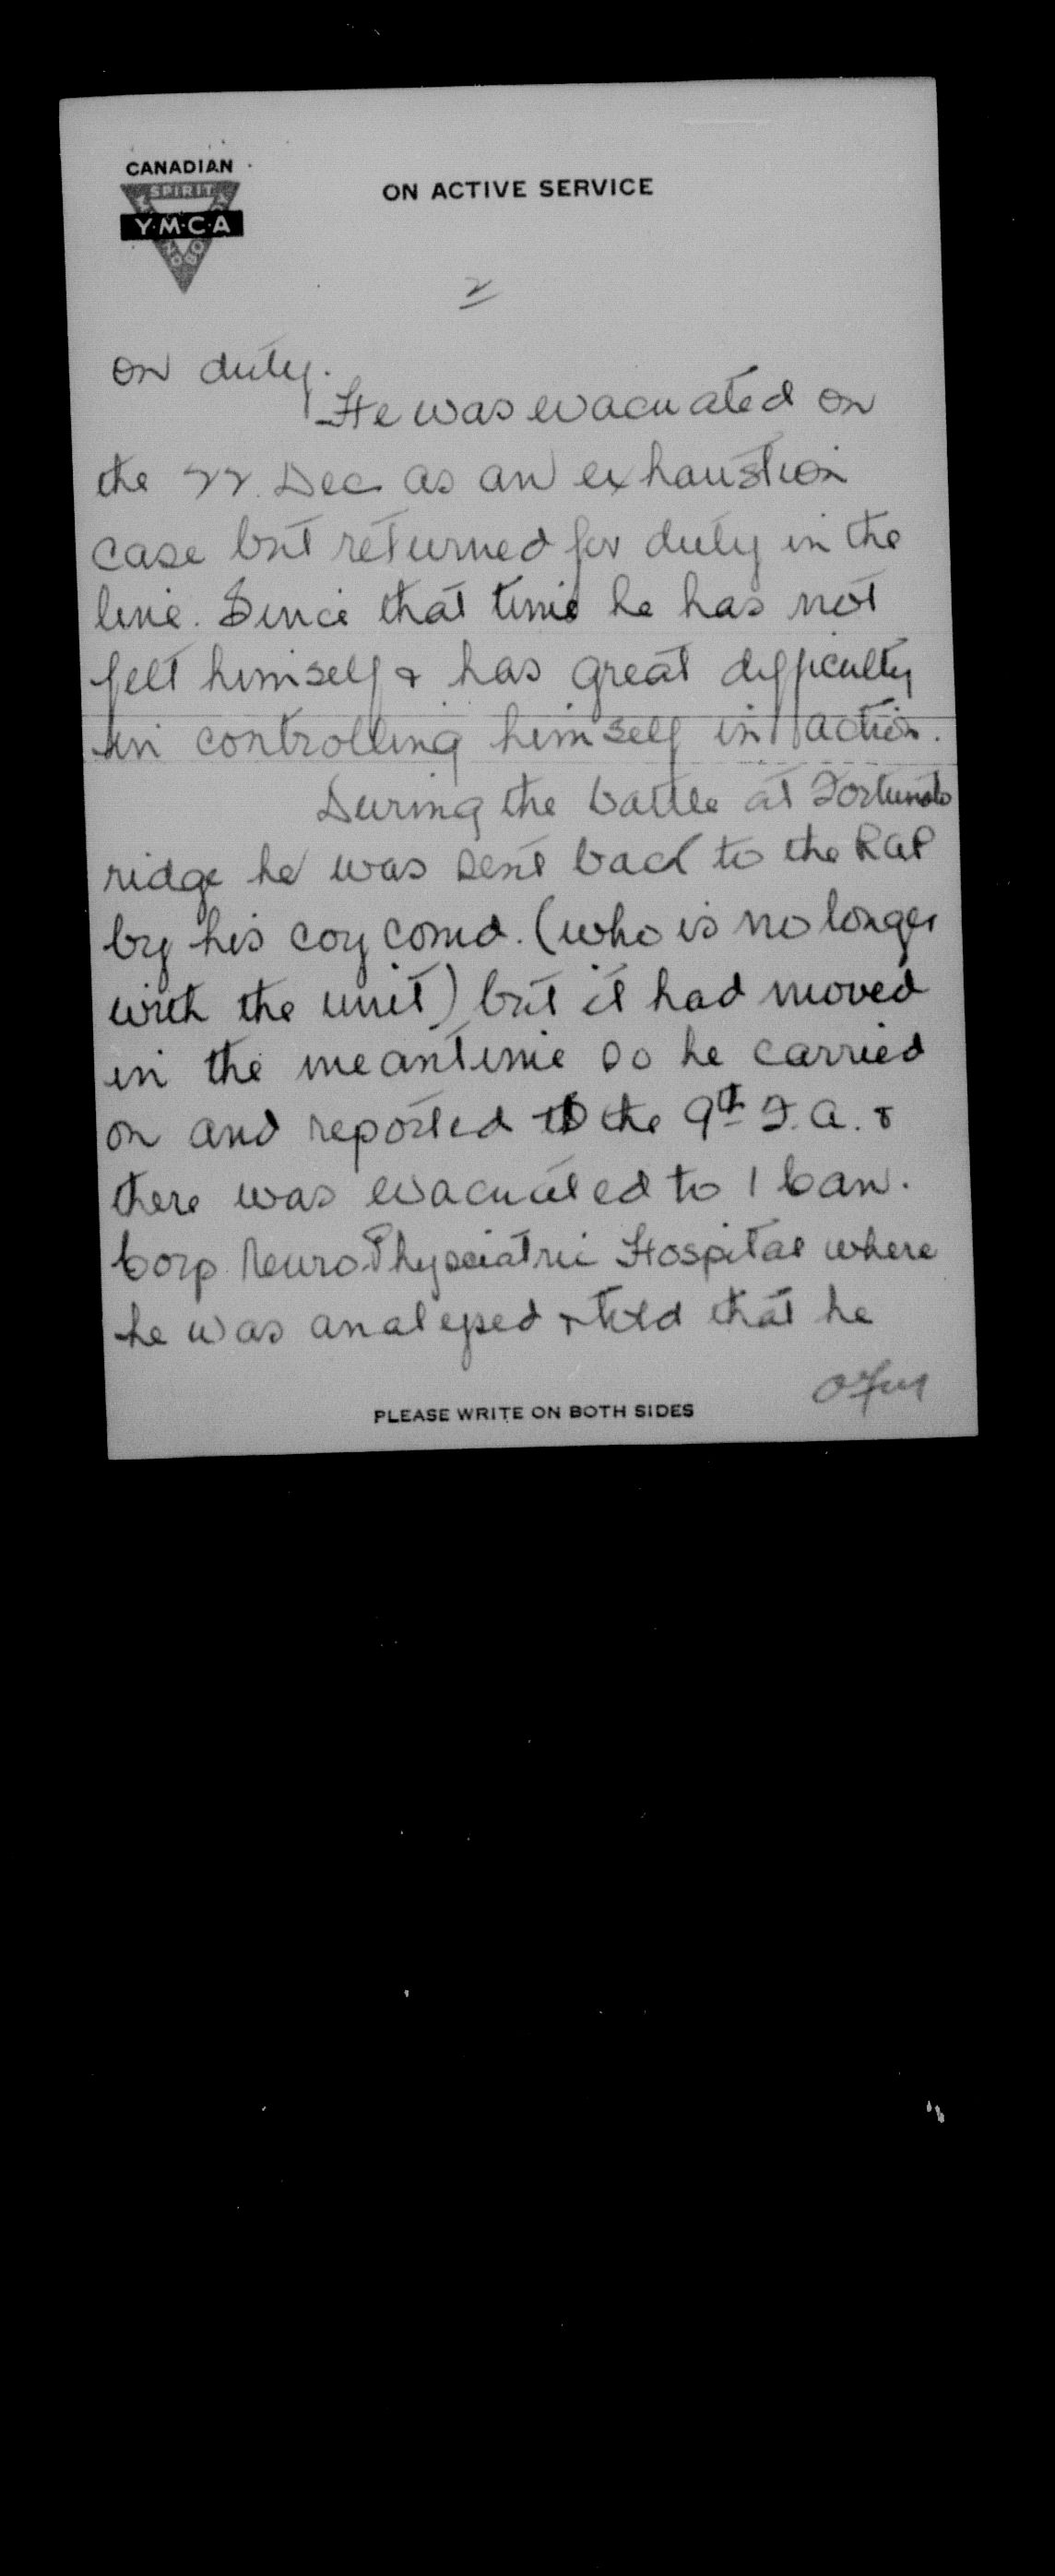 CANADIAN
SPIRIT
Y·M·C·A
ON ACTIVE SERVICE
2
on duty.
He was evacuated on
the 22 Dec as an exhaustion
case but returned for duty in the
line. Since that time he has not
felt himself & has great difficulty
in controlling himself in action.
During the battle at Fortunato
ridge he was sent back to the RAP
by his coy comd. (who is no longer
with the unit) but it had moved
in the meantime so he carried
on and reported to the 9th F.A. &
there was evacuated to 1 Can.
Corp. Neuro Physciatric Hospital where
he was analysed & told that he
PLEASE WRITE ON BOTH SIDES